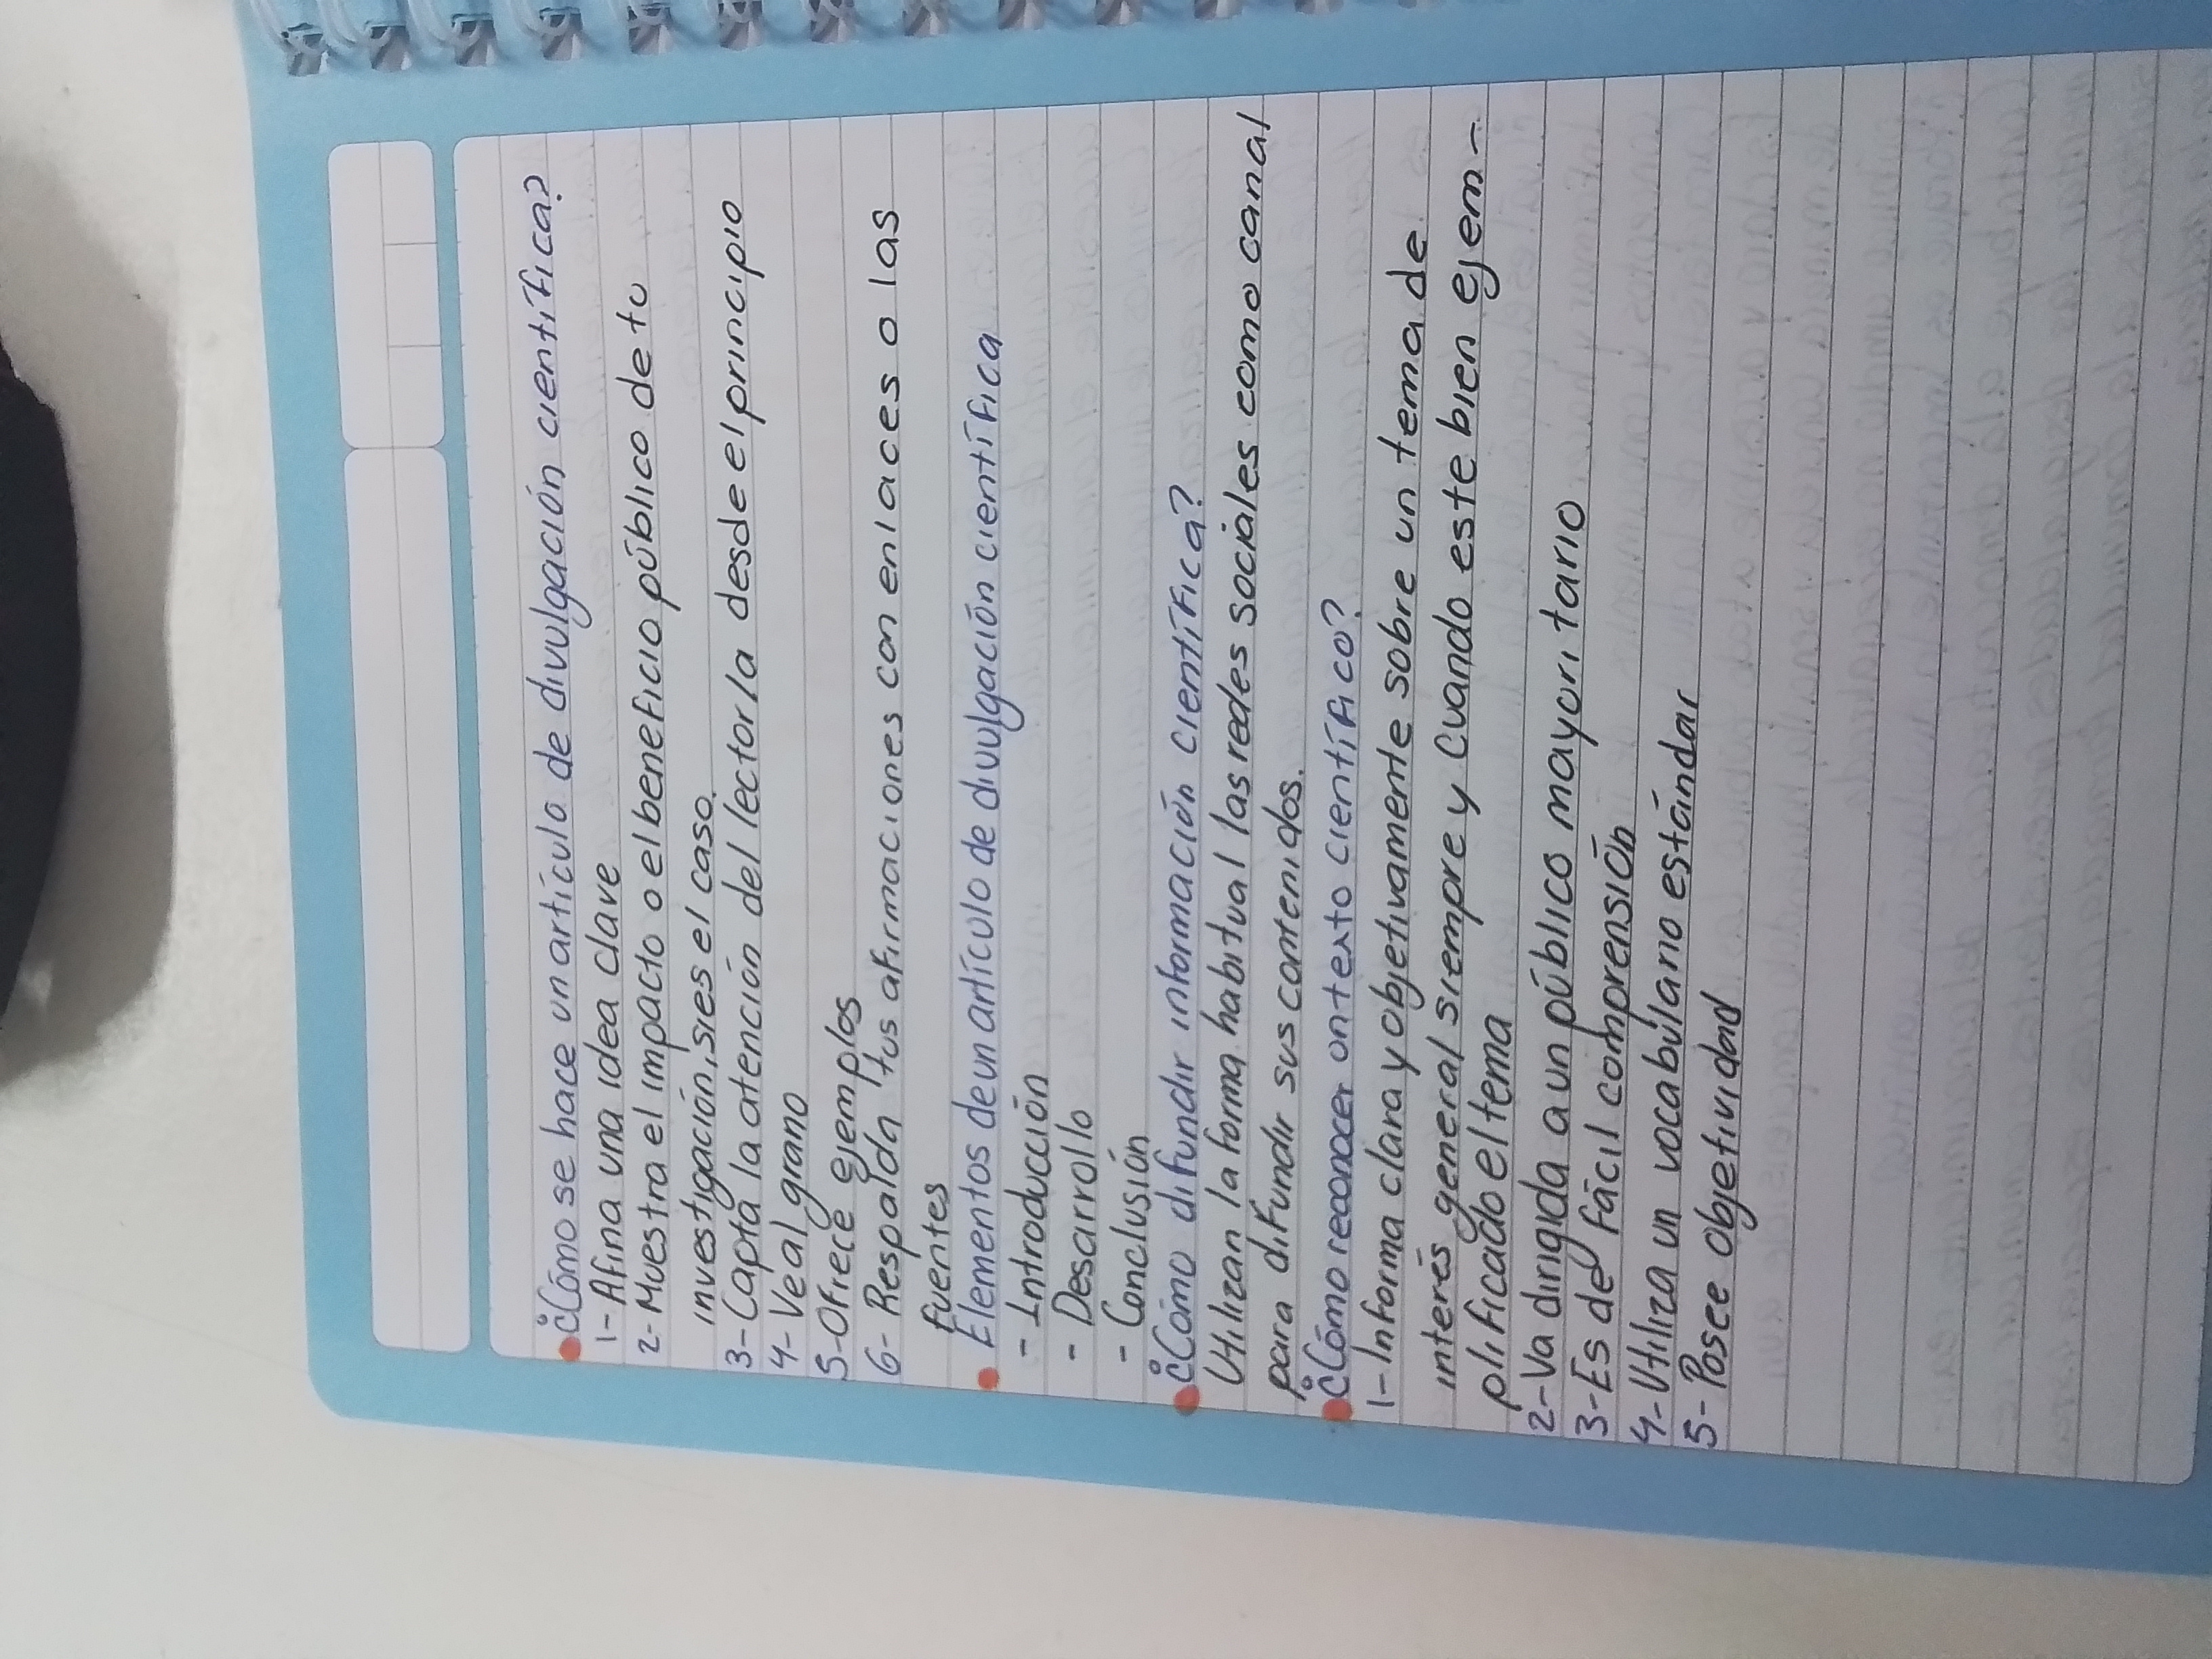 ¿Cómo se hace un artículo de divulgación científica?
1- Afina una idea clave
2- Muestra el impacto o el beneficio público de tu
investigación, si es el caso.
3- Capta la atención del lector/a desde el principio
4- Ve al grano
5- Ofrece ejemplos
6- Respalda tus afirmaciones con enlaces o las
fuentes
Elementos de un artículo de divulgación científica
- Introducción
- Desarrollo
- Conclusión
¿Cómo difundir información científica?
Utilizan la forma habitual las redes sociales como canal
para difundir sus contenidos.
¿Cómo reconocer un texto científico?
1- Informa clara y objetivamente sobre un tema de
interés general siempre y cuando este bien ejem-
plificado el tema
2- Va dirigida a un público mayoritario
3- Es de fácil comprensión
4- Utiliza un vocabulario estándar
5- Posee objetividad